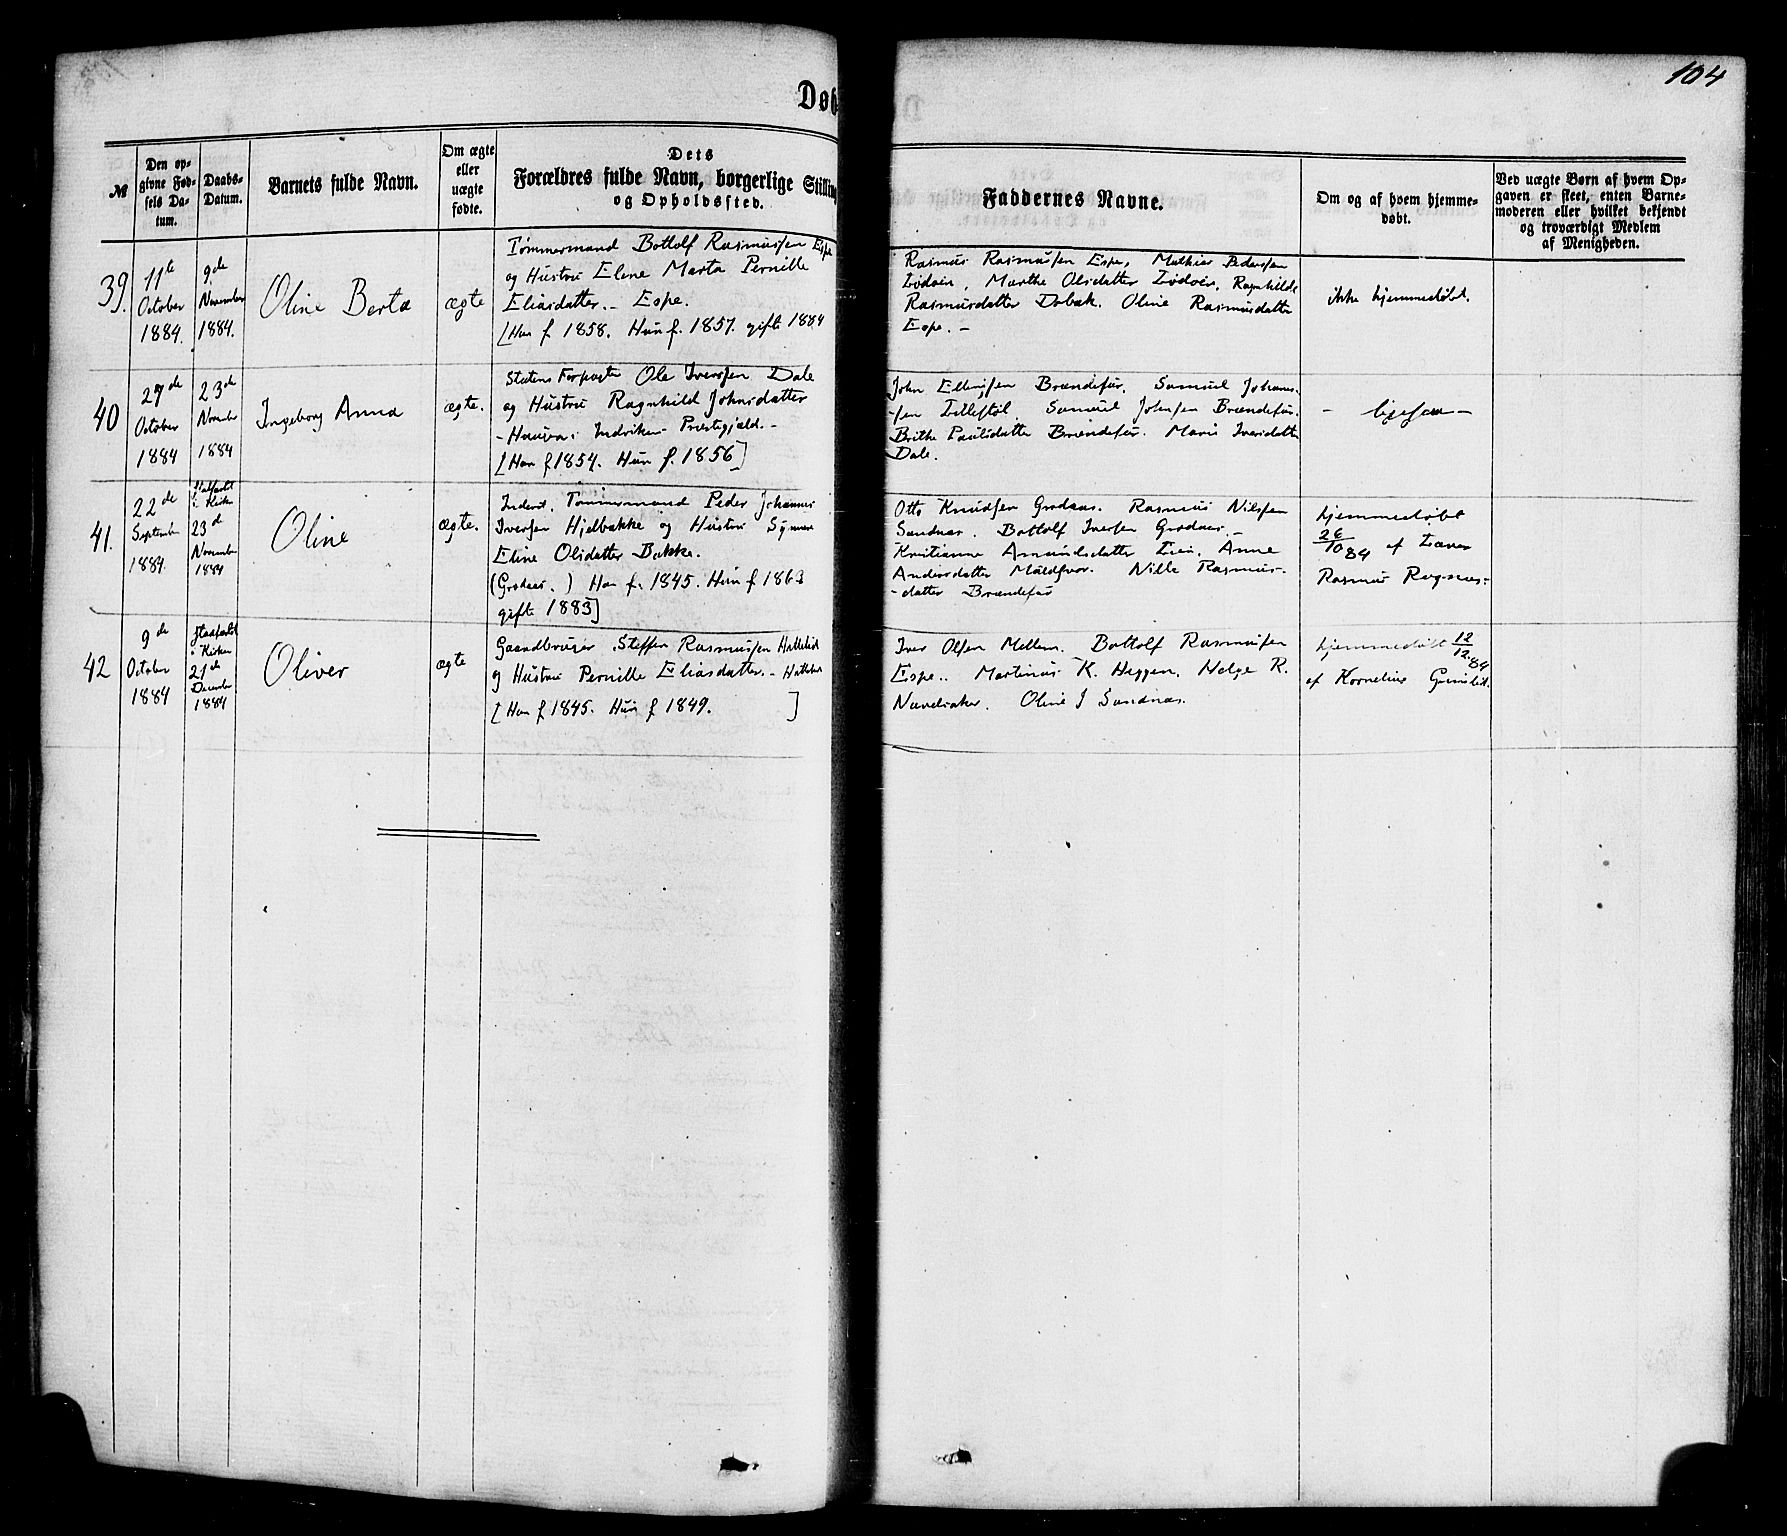 104
Døb
№
Den op-
givne Fød-
sels Da-
tum.
Daabs-
Datum.
Barnets fulde Navn.
Om ægte
eller
uægte
fødte.
Dets
Forældres fulde Navn, borgerlige Stilling
og Opholdssted.
Faddernes Navne.
Om og af hvem hjemme-
døbt.
Ved uægte Børn af hvem Op-
gaven er skeet, enten Barne-
moderen eller hvilket bekjendt
og troværdigt Medlem
af Menigheden.
39.
11te
October
1884.
9de
November
1884.
Oline Berta
ægte
Tømmermand Bottolf Rasmussen Espe
og Hustru Eline Marta Pernille
Eliasdatter. - Espe.
[Han f. 1858. Hun f. 1857. gifte 1884
Rasmus Rasmussen Espe, Mathias Pedersen
Lødøen, Marthe Olsdatter Lødøen, Ragnhilde
Rasmusdatter Dobak. Oline Rasmusdatter
Espe. -
ikke hjemmedøbt.
40
27de
October
1884
23de
Novembr
1884
Ingeborg Anna
ægte.
Statens Forpagter Ole Iversen Dale
og Hustru Ragnhild Johnsdatter
- i Indviken Præstegjæld. -
[Han f 1854. Hun f. 1856]
John Ellingsen Brændefur. Samuel Johannes-
-sen Lillestøl. Samuel Johnsen Brændefur.
Brithe Paulsdatter Brændefur. Marie Iversdatter
Dale.
- ligesaa -
41.
22de
September
1884.
Stadfæstet
i Kirken
23de
November
1884
Oline
ægte.
Inderst. Tømmermand Peder Johannes
Iversen Hjelbakke og Hustru Synneve
Eline Olsdatter Bakke.
(Grodaas.) Han f. 1845. Hun f 1863
gifte 1883]
Otto Knudsen Grodaas. Rasmus Nilsen
Sandnæs. Bottolf Iversen Grodaas. -
Kristianne Amundsdatter Lien. Anne
Andersdatter Maldvor. Nille Rasmus-
-datter Brændefur
hjemmedøbt
26/10 84 af Lærer
Rasmus Rognes.
42
9de
October
1884
Stadfæstet
i Kirken
21de
December
1884
Oliver
ægte
Gaardbruger Steffen Rasmussen Hatlelid
og Hustru Pernille Eliasdatter. - Hatlelid
[Han f 1845. Hun f 1849. ]
Iver Olsen Mellem. Bottolf Rasmussen
Espe.. Martinus K. Heggen. Helge R.
Navelsaker. Oline J Sandnæs.
hjemmedøbt 12/12 84
af Kornelius Grimslid.